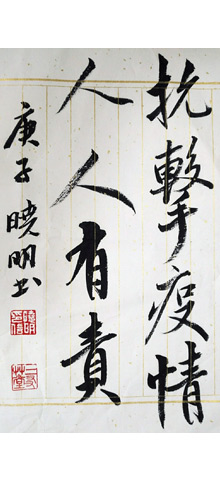 抗擊疫情
人人有責
庚子 曉明书